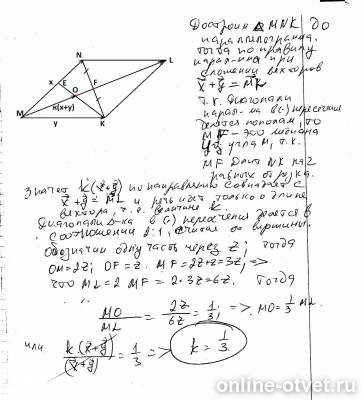 N
L
x
E
F
O
k(x+y)
M
y
K
Достроим △MNK до
параллелограмма.
Тогда по правилу
парал-ма при
сложении векторов
x + y = ML
т.к. диагонали
парал-ма в (·) пересечения
делятся пополам, то
MF - это медиана
угла M, т.к.
MF делит NK на 2
равных отрезка.
Значит k(x+y) по направлению совпадает с
x+y = ML и речь идёт только о длине
вектора, т.е. величине k
в (·) пересечения делятся в
соотношении 2:1, считая от вершины.
Обозначим одну часть через z; тогда
OM=2z; OF=z. MF=2z+z=3z, =>
что ML=2MF=2·3z=6z. Тогда
MO/ML = 2z/6z = 1/3; => MO=1/3 ML
или k(x+y)/(x+y) = 1/3 => k = 1/3
online-otvet.ru